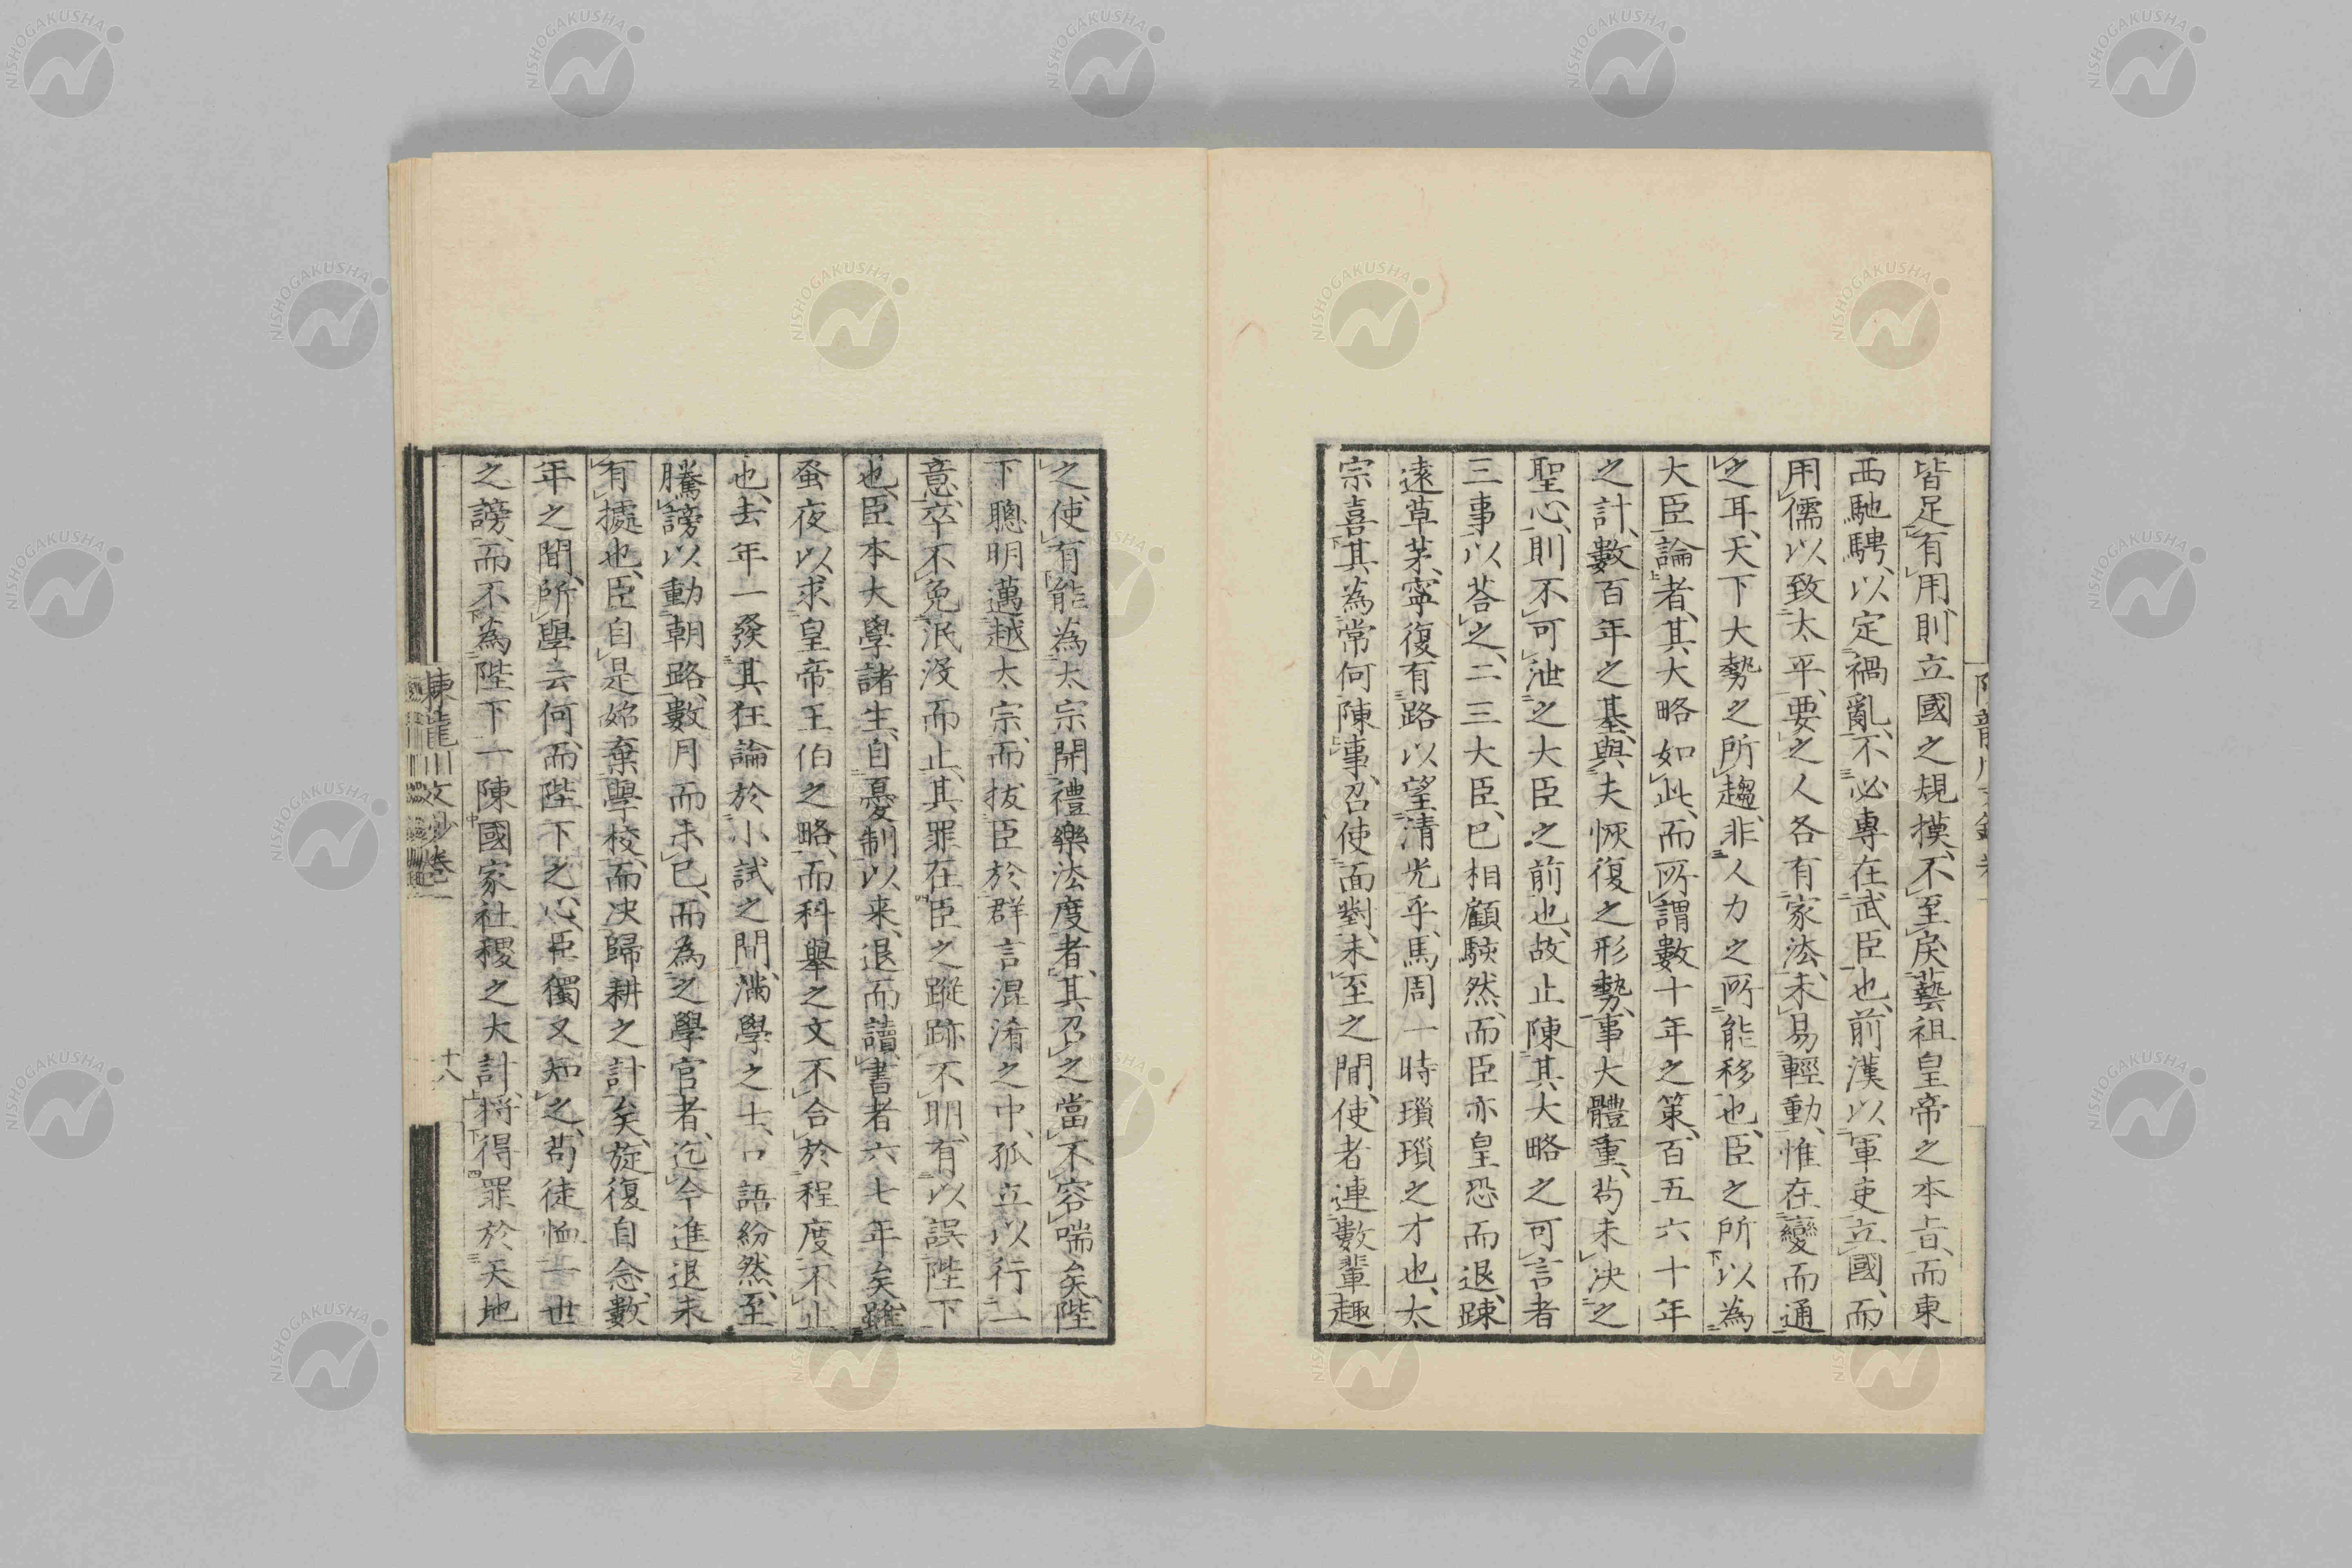 皆足有用、則立國之規摸、不至戾藝祖皇帝之本旨、而東
西馳騁、以定禍亂、不必專在武臣也、前漢以軍吏立國、而
用儒以致太平、要之人各有家法、未易輕動、惟在變而通
之耳、天下大勢之所趨、非人力之所能移也、臣之所以為
大臣論者、其大略如此、而所謂數十年之策、百五六十年
之計、數百年之基、與夫恢復之形勢、事大體重、苟未決之
聖心、則不可泄之大臣之前也、故止陳其大略之可言者
三事以荅之、二三大臣、已相顧駭然、而臣亦皇恐而退、踈
遠草茅、寧復有路以望清光乎、馬周一時瑣瑣之才也、太
宗喜其為常何陳事、召使面對、未至之間、使者連數輩趣
之、使有能為太宗開禮樂法度者、其召之當不容喘矣、陛
下聰明邁越太宗、而拔臣於群言混淆之中、孤立以行一
意、卒不免泯沒而止、其罪在臣之蹤跡不明、有以誤陛下
也、臣本大學諸生、自憂制以来、退而讀書者六七年矣、雖
蚤夜以求皇帝王伯之略、而科舉之文不合於程度不止
也、去年一發其狂論於小試之間、滿學之士、口語紛然、至
騰謗以動朝路、數月而未已、而為之學官者、迄今進退未
有據也、臣自是始棄學校、而决歸耕之計矣、旋復自念、數
年之間、所學云何、而陛下之心、臣獨又知之、苟徒恤一世
之謗、而不為陛下一陳國家社稷之大計、將得罪於天地
陳龍川文鈔卷一
十八